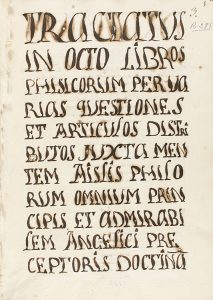 TRACTATUS
IN OCTO LIBROS
PHISICORUM PER VA
RIAS QUESTIONES
ET ARTICULOS DISTRI
BUTOS JUXTA MEN
TEM AISLIS PHILO
RUM OMNIUM PRIN
CIPIS ET ADMIRABI
LEM ANGELICI PRE
CEPTORIS DOCTINA